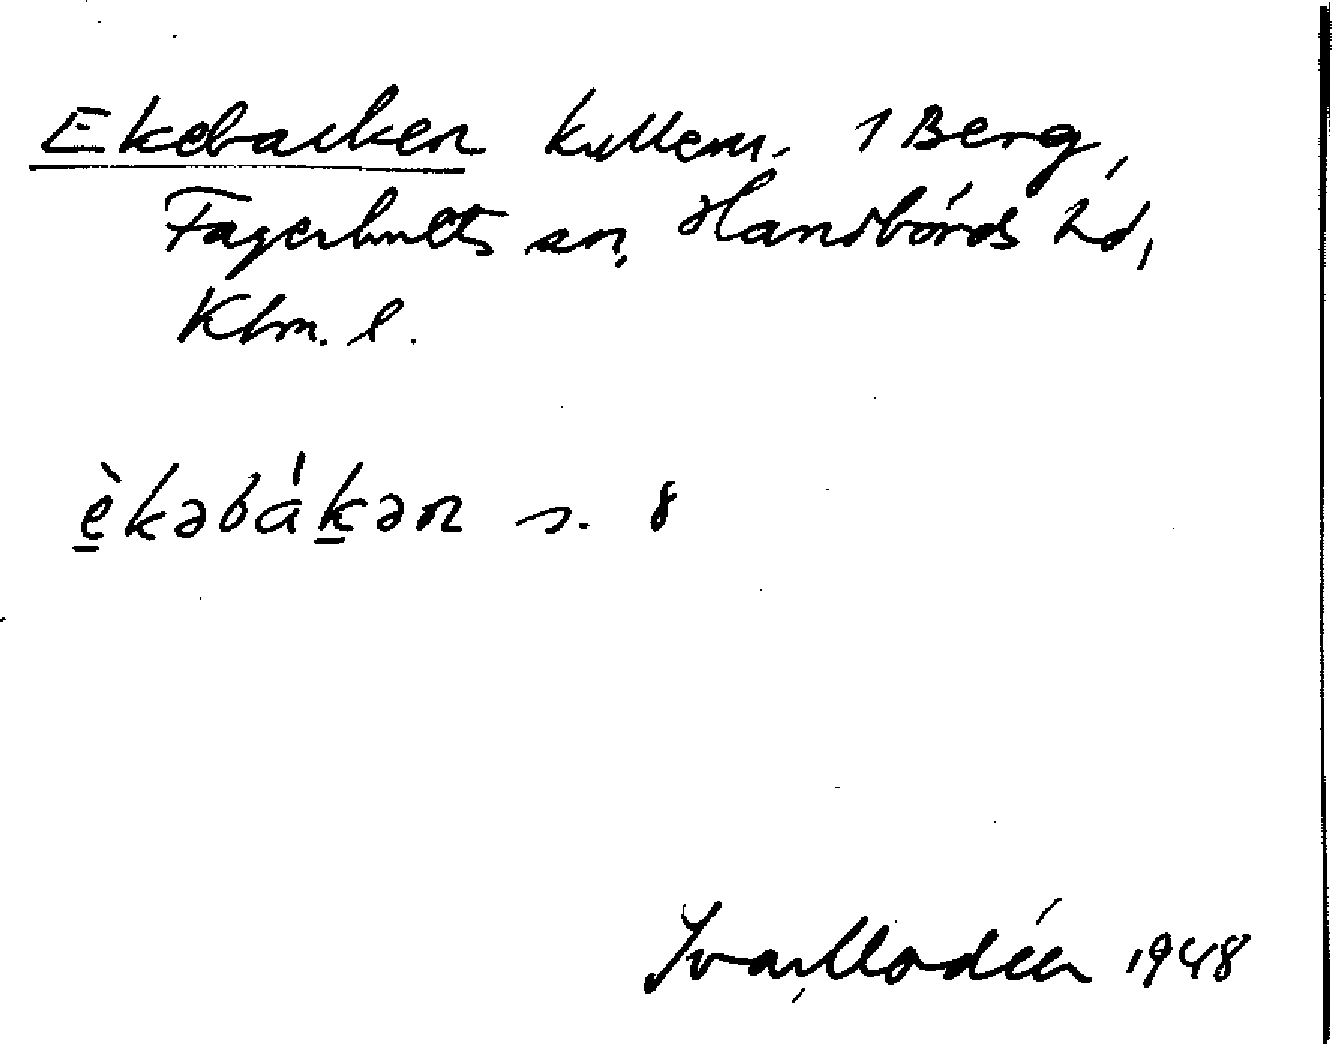 Ekebacken kullem. 1 Berg,
Fagerhults sn, Handbörds hd,
Klm. l.
è̱kəbáḵən s. 8
Ivar Modéer 1948